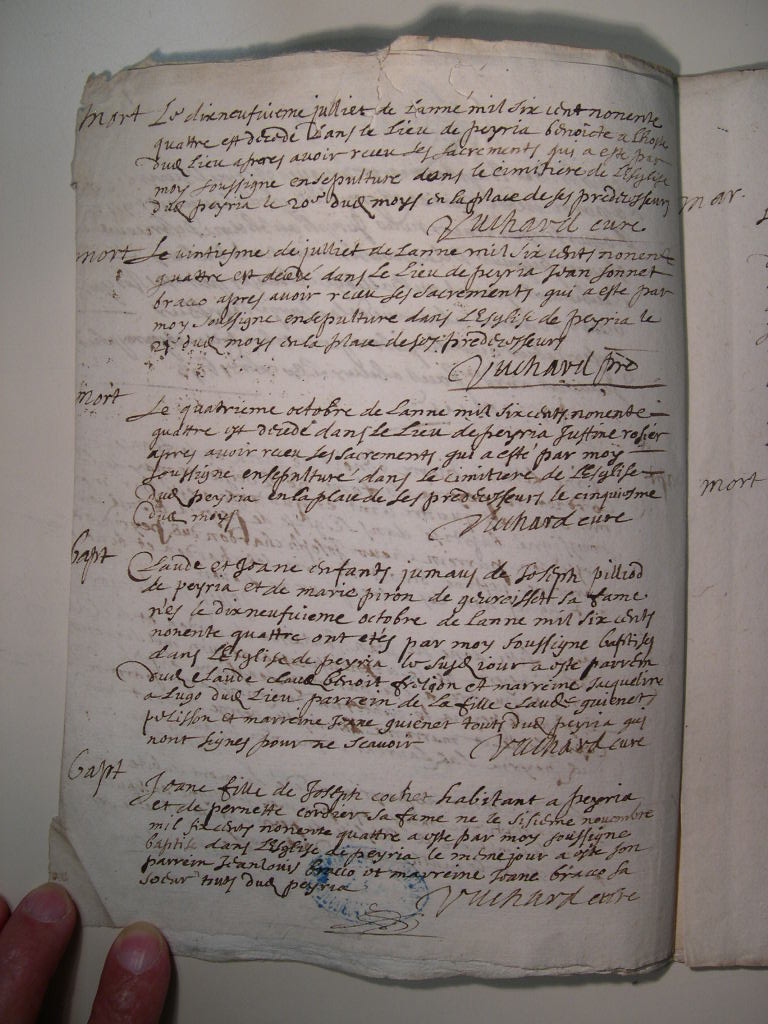 mort Le dixneufvieme julliet de Lanne mil six cent nonente
quattre est decede dans le Lieu de peyria benoicte a Lhoste
dud Lieu apres avoir receu Les sacrements qui a esté par
moy soussigne ensepulture dans le cimitiere de LEsglise
dud peyria le 20e dud moys en la place de ses predecesseurs
Vuchard cure
mort Le vintiesme de julliet de Lanne mil six cents nonente
quattre est decedé dans Le Lieu de peyria Jean Jonnet
braco apres avoir receu Les sacrements qui a esté par
moy soussigne ensepulture dans LEsglise de peyria le
dud moys en la place de ses predecesseurs
Vuchard pre
mort
Le quatrieme octobre de Lanne mil six cents nonente
quattre est decedé dans Le Lieu de peyria Justine rosier
apres avoir receu Les sacrements qui a esté par moy
soussigne ensepulturé dans le cimitiere de LEsglise
dud peyria en la place de Ses predecesseurs le cinquiesme
dud moys Vuchard cure
bapt
Claude et Joane enfants jumaus de Joseph pilliod
de peyria et de marie piron de sa fame
nés le dixneufvieme octobre de Lanne mil six cents
nonente quattre ont etés par moy soussigne baptisés
dans LEsglise de peyria le susd jour a este parrein
dud Claude Claud benoit et marreine Jacqueline
a Lugo dud Lieu parrein de La fille Claude guienet
et marreine Joane guienet touts dud peyria qui
nont signes pour ne scavoir Vuchard cure
bapt
Joane fille de Joseph cochet habitant a peyria
et de pernette cordier sa fame ne le sisieme novembre
mil six cents nonente quattre a este par moy soussigne
baptisé dans LEsglise de peyria le meme jour a esté son
parrein Jean Louis braco et marreine Joane braco sa
soeur touts dud peyria Vuchard cure
mar.
mort